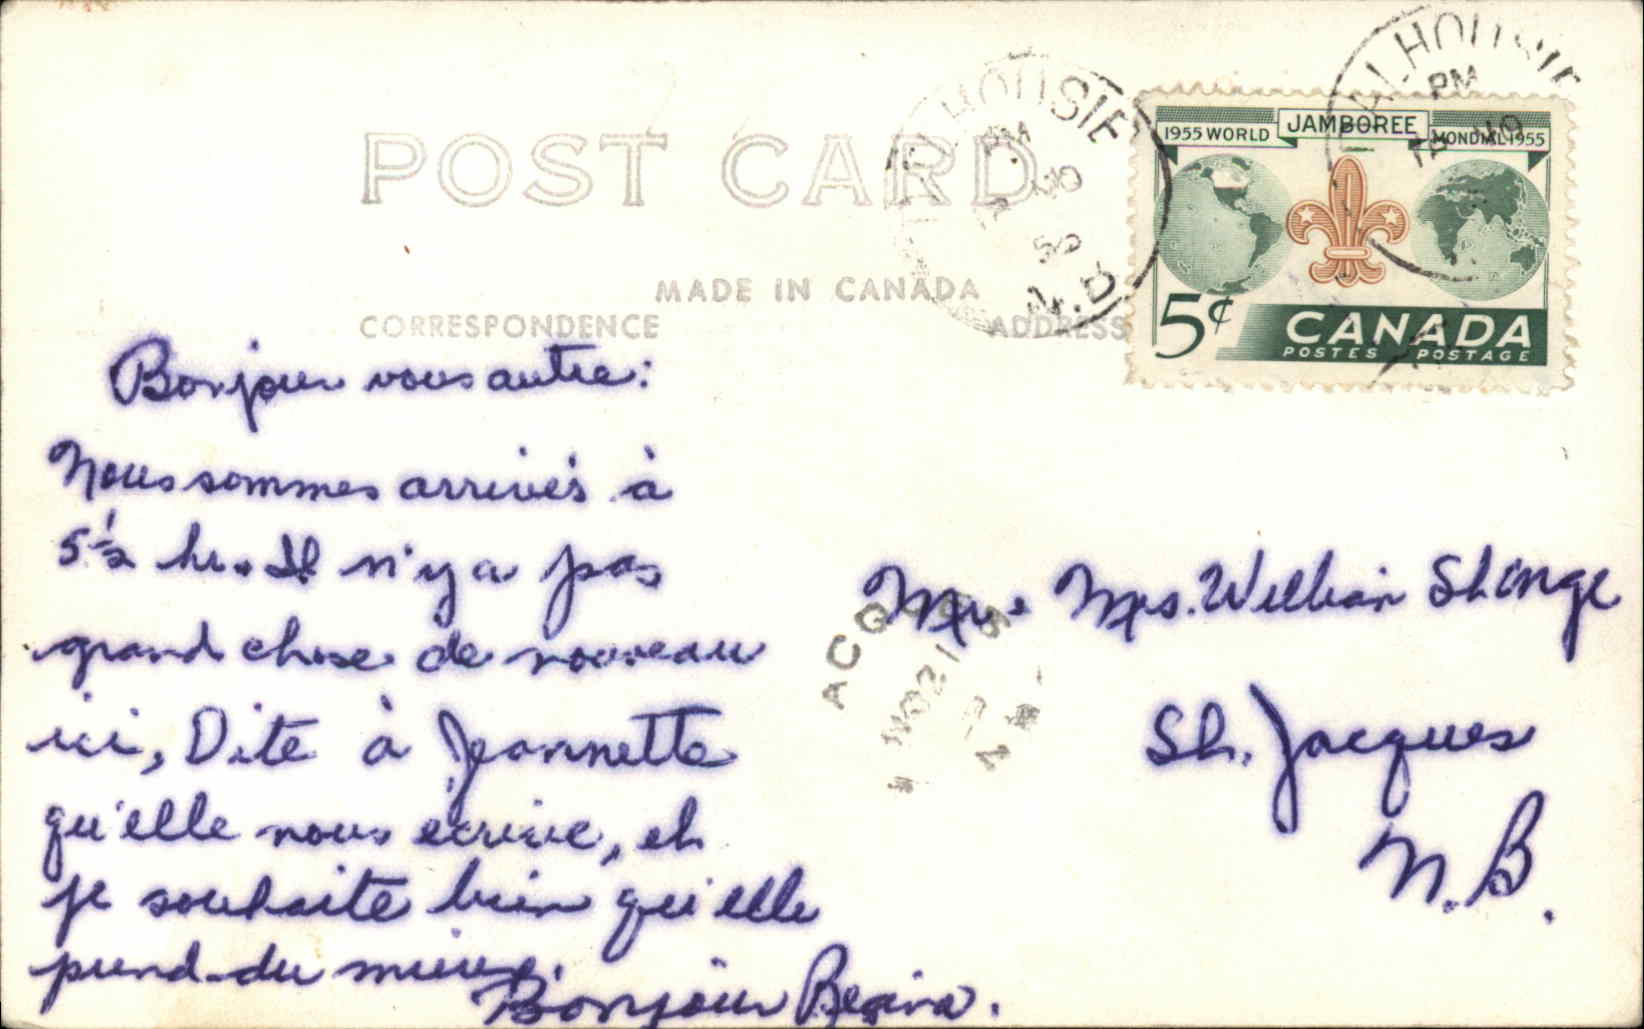 POST CARD
MADE IN CANADA
CORRESPONDENCE
ADDRESS
1955 WORLD JAMBOREE MONDIAL 1955
5¢ CANADA
POSTES POSTAGE
PM
N.B.
Bonjour vous autre:
Nous sommes arrivés à
5½ hr. Il n'y a pas
grand chose de nouveau
ici, Dite à Jeannette
qu'elle nous écrive, et
je souhaite bien qu'elle
prend du mieux.
Bonjour Regina.
Mr & Mrs. William
St. Jacques
N.B.